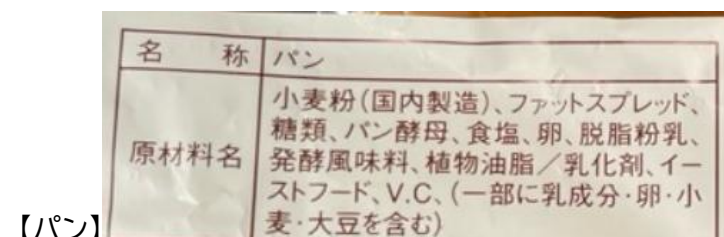 名 称 パン
原材料名 小麦粉(国内製造)、ファットスプレッド、
糖類、パン酵母、食塩、卵、脱脂粉乳、
発酵風味料、植物油脂/乳化剤、イー
ストフード、V.C、(一部に乳成分・卵・小
麦・大豆を含む)
【パン】